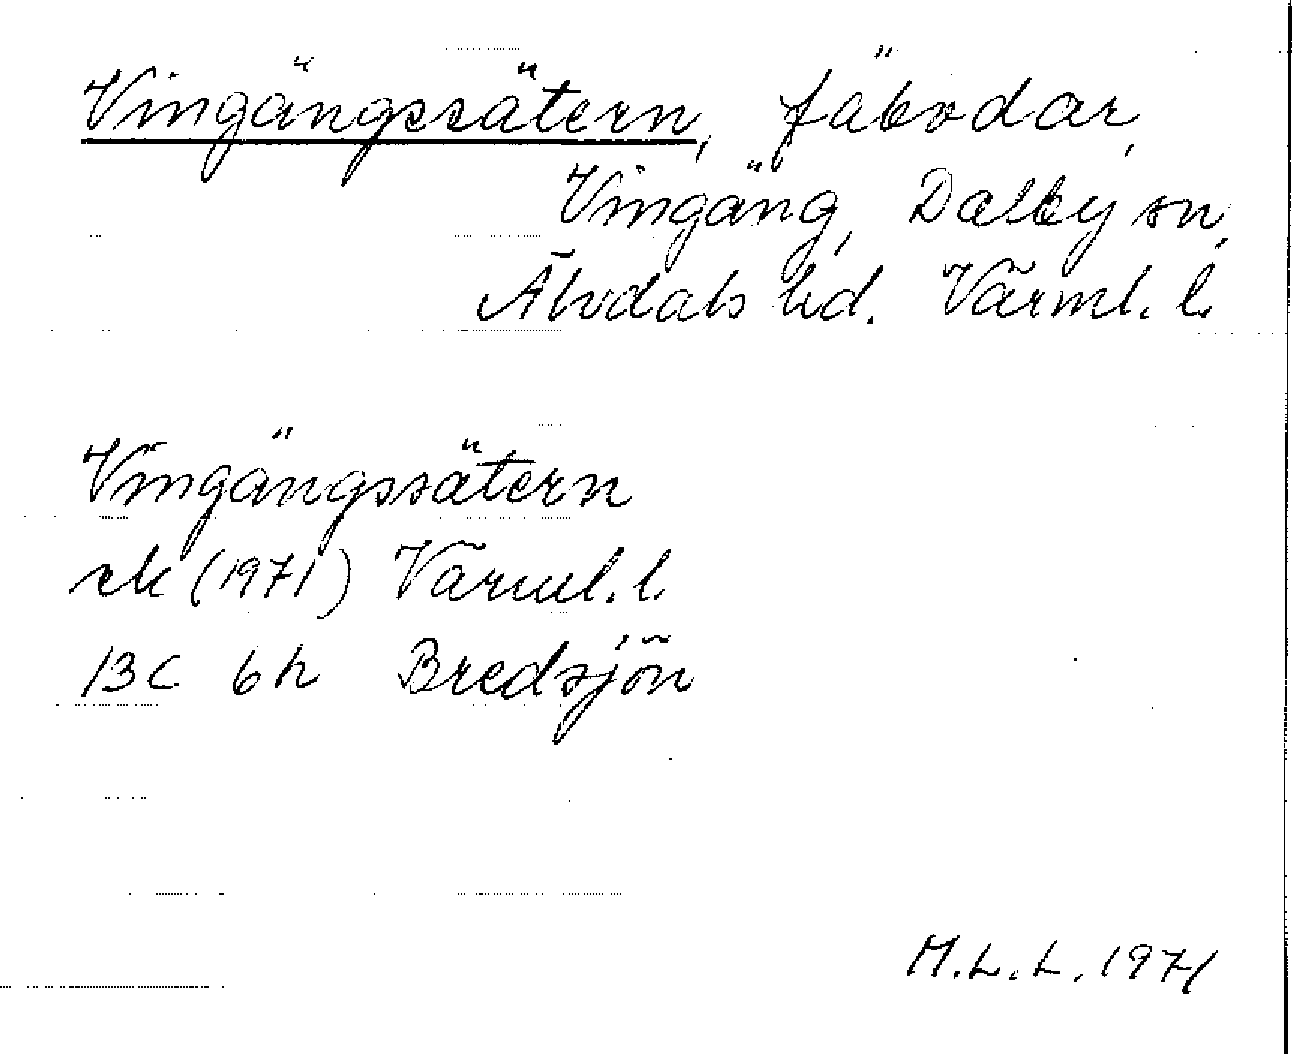 Vingängssätern, fäbodar,
Vingäng, Dalby sn,
Älvdals hd. Värml. l.
Vingängssätern
ek (1971) Värml. l.
13C 6h Bredsjön
M.L.L. 1971